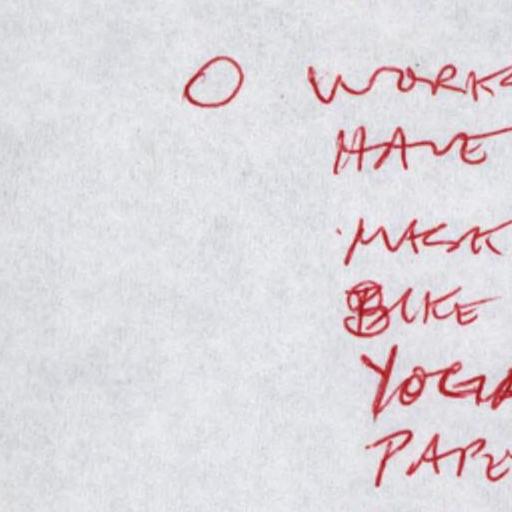 O WORKS
HAVE
MASK
BIKE
YOGA
PAPE